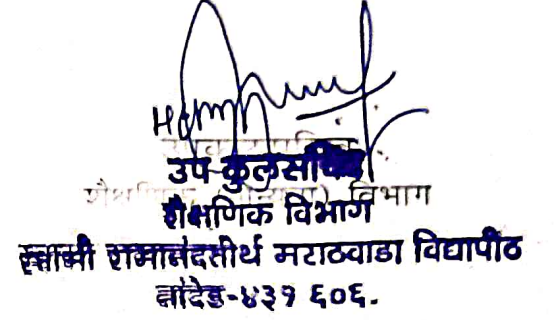 उप-कुलसचिव
शैक्षणिक विभाग
स्वामी रामानंदतीर्थ मराठवाडा विद्यापीठ
नांदेड-४३१ ६०६.